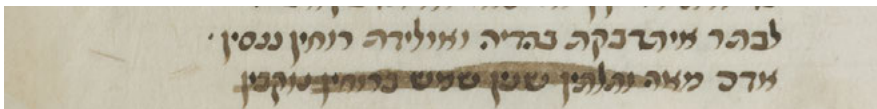 לבתר איתדבקת בהדיה ואולידת רוחין ננסין ·
אדם מאה ותלתין שנין שמש ברוחין נוקבין